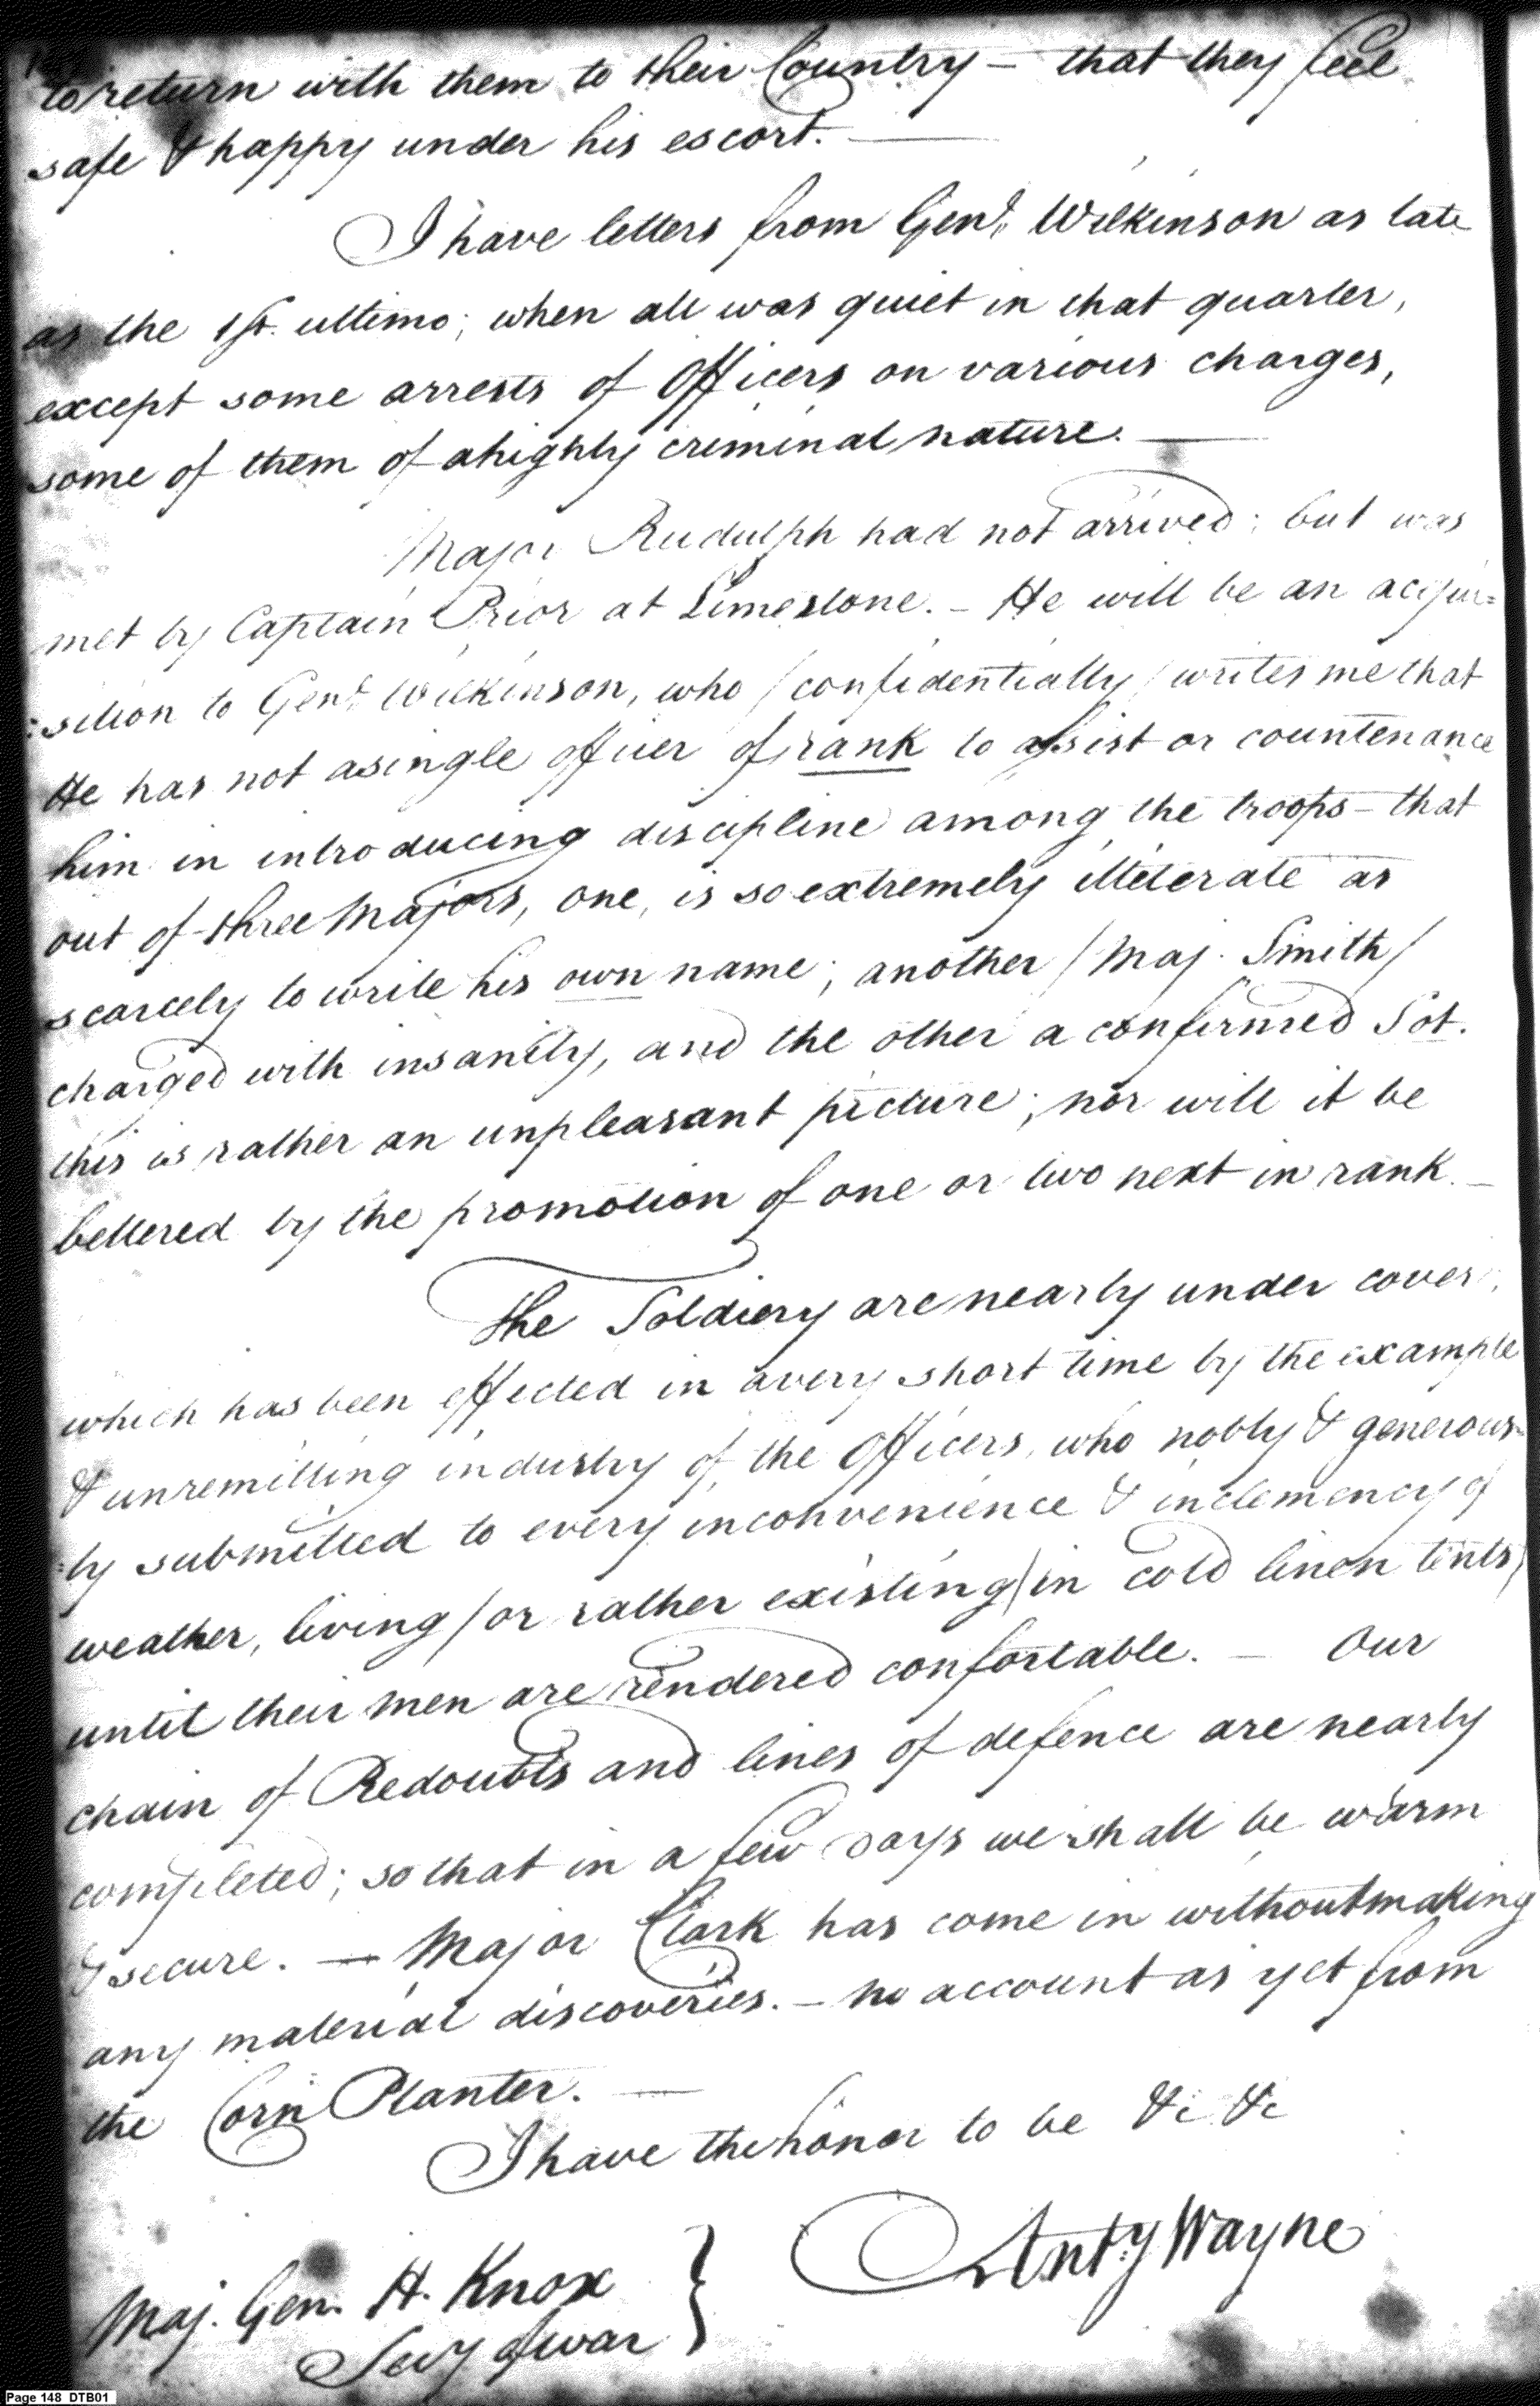 to return with them to their Country – that they feel
safe & happy under his escort. —
I have letters from Genl. Wilkinson as late
as the 1st. ultimo; when all was quiet in that quarter,
except some arrests of Officers on various charges,
some of them of a highly criminal nature. —
Major Rudulph had not arrived; but was
met by Captain Prior at Limestone. – He will be an acqui=
:sition to Genl. Wilkinson, who / confidentially / writes me that
He has not a single officer of rank to assist or countenance
him in introducing discipline among the troops – that
out of three Majors, one, is so extremely illiterate as
scarcely to write his own name; another / Maj. Smith /
charged with insanity, and the other a confirmed Sot.
this is rather an unpleasant picture; nor will it be
bettered by the promotion of one or two next in rank. –
The Soldiery are nearly under cover,
which has been effected in a very short time by the example
& unremitting industry of the Officers, who nobly & generous=
:ly submitted to every inconvenience & inclemency of
weather, living / or rather existing / in cold linen tents,
until their men are rendered confortable. – Our
chain of Redoubts and lines of defence are nearly
completed; so that in a few days we shall be warm
& secure. — Major Clark has come in without making
any material discoveries. – no account as yet from
the Corn Planter. —
I have the honor to be &c &c
Anty Wayne
Maj. Gen. H. Knox }
Secy of war
Page 148 DTB01